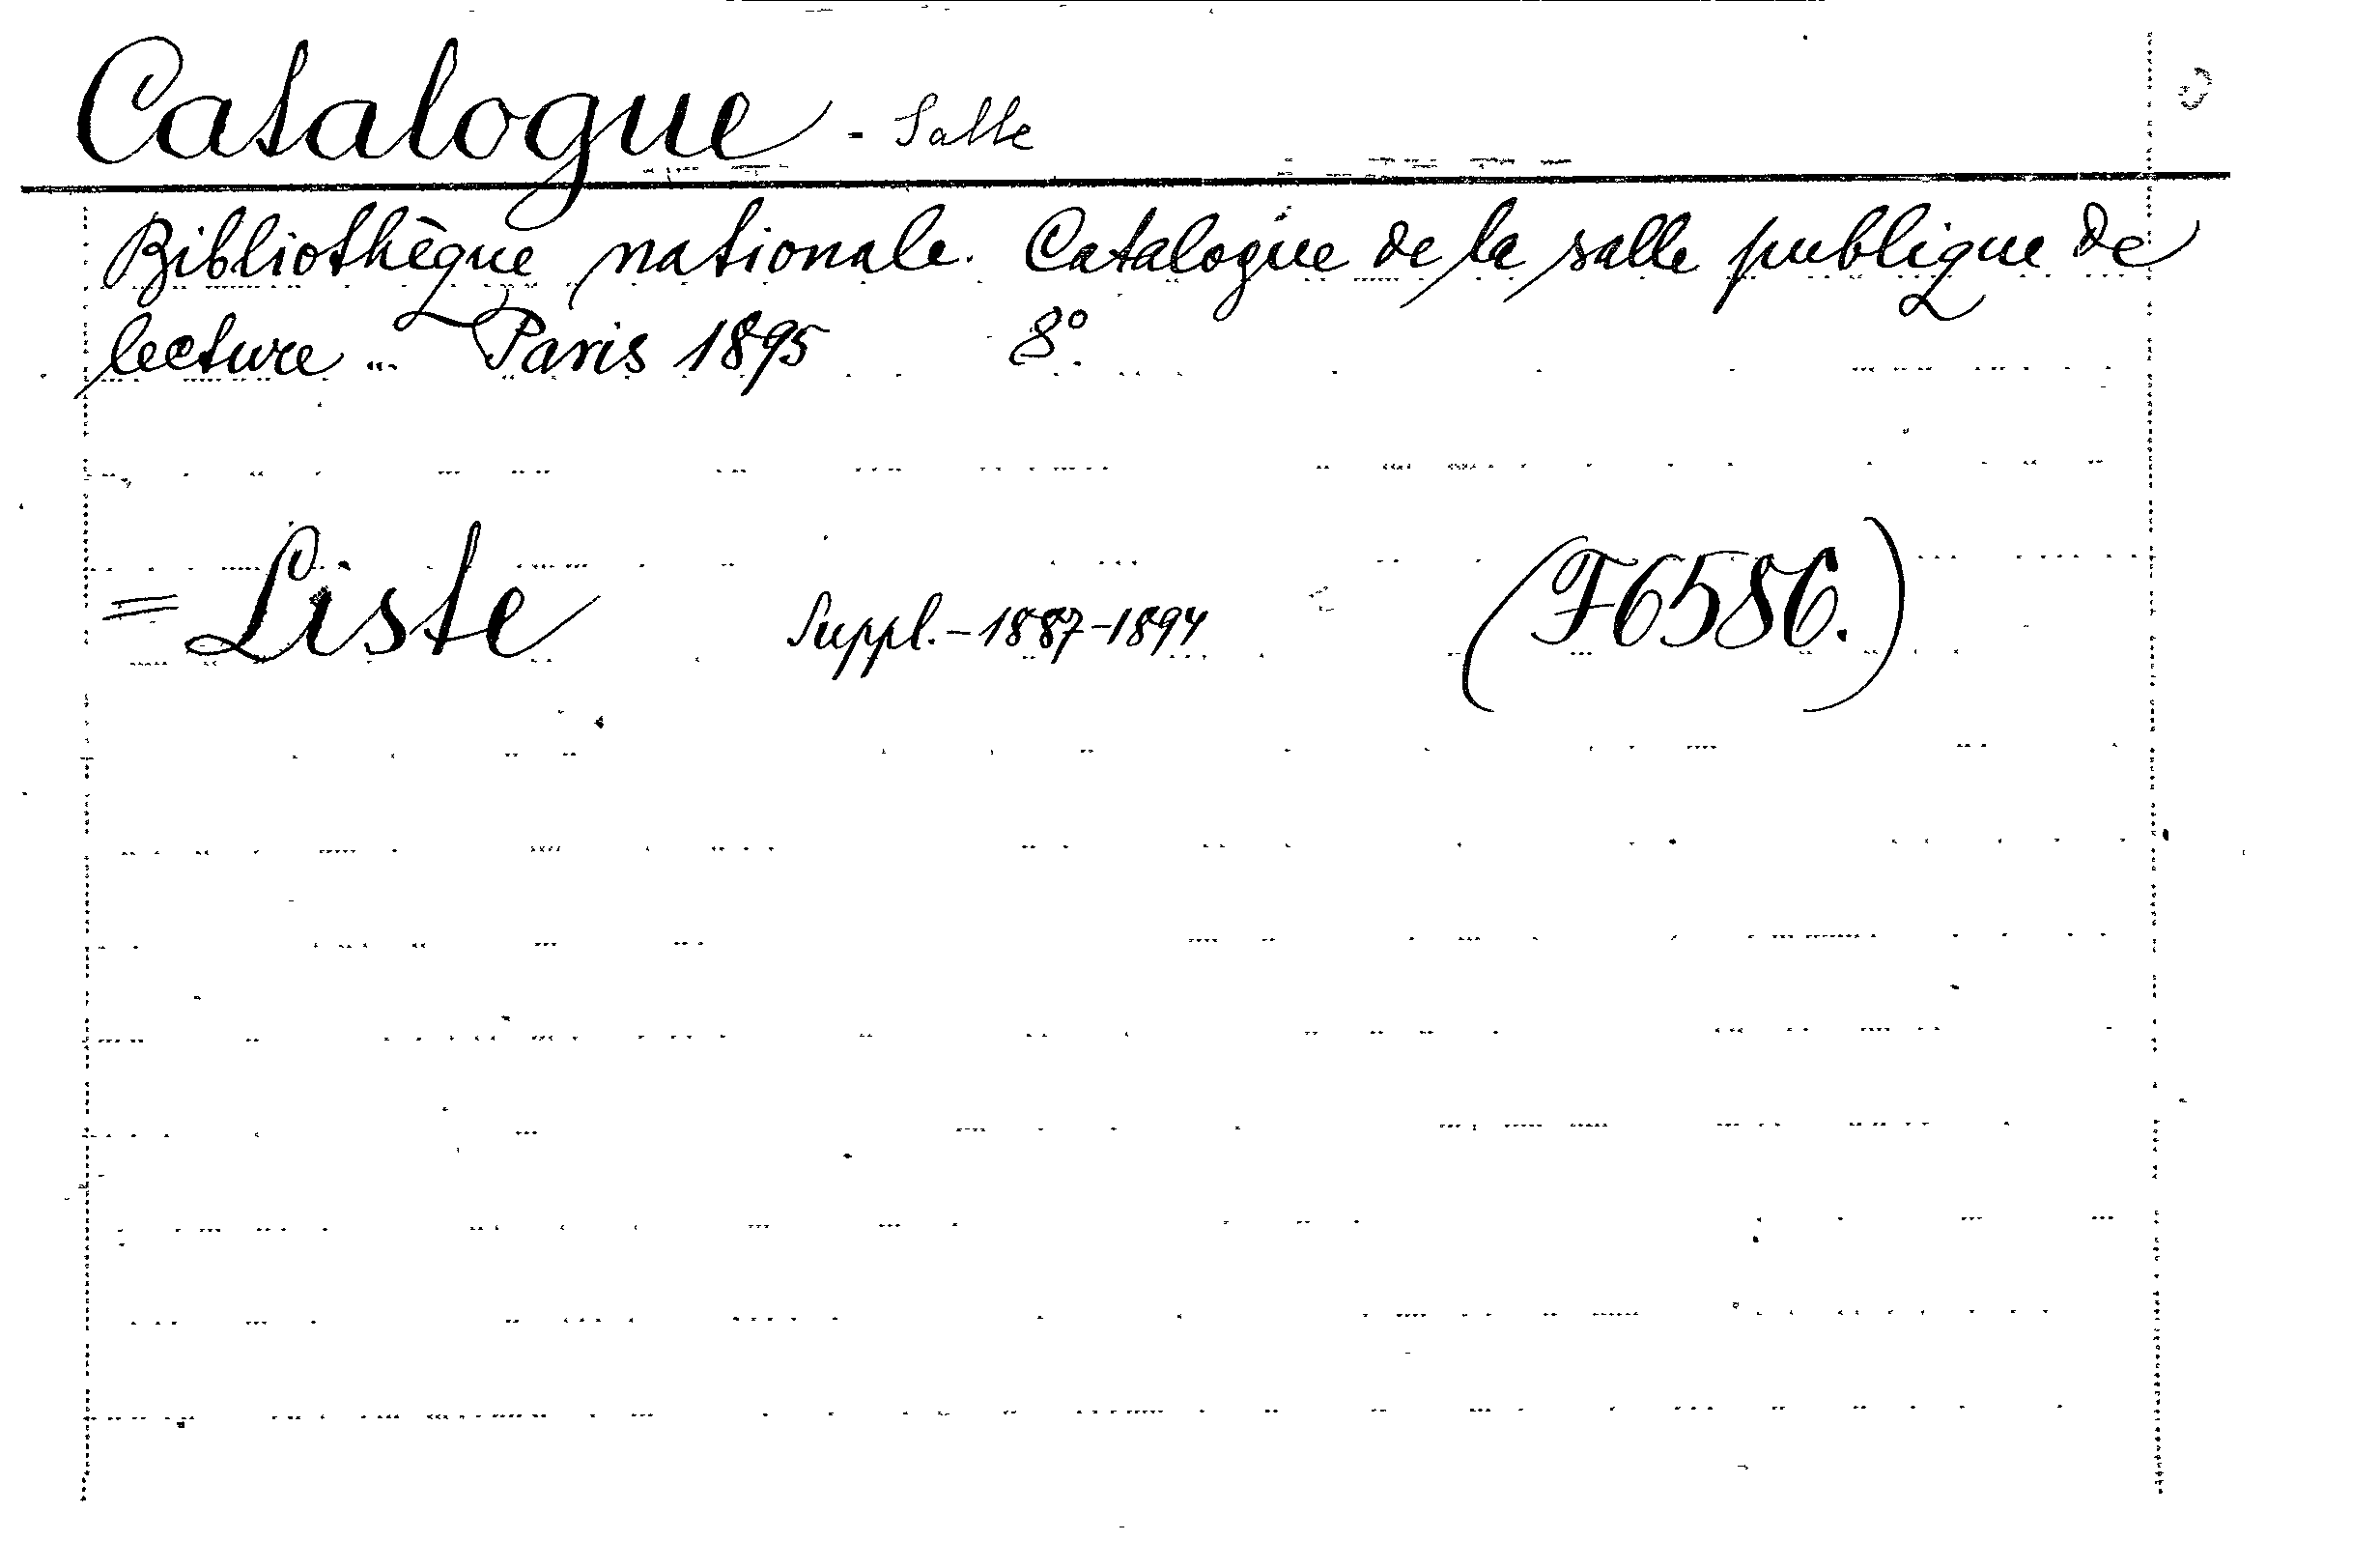 Catalogue - Salle
Bibliothèque nationale. Catalogue de la salle publique de
lecture ... Paris 1895 8°.
= Liste Suppl. - 1887-1894 (F6586.)